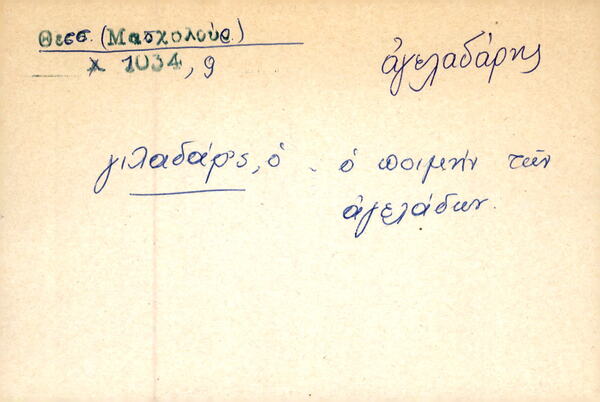 Θεσσ. (Μασχολούρ.)
χ 1034, 9
ἀγελαδάρης
γιλαδάρ'ς, ὁ . ὁ ποιμήν τῶν
ἀγελάδων.